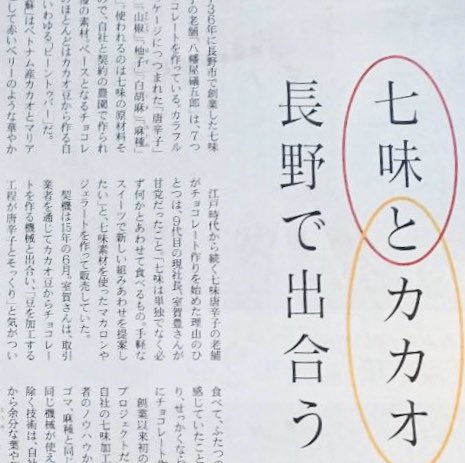 七味とカカオ
長野で出合う
36年に長野市で創業した七味
の老舗、八幡屋礒五郎は、7つ
コレートを作っている。カラフル
ケージにつつまれた「唐辛子」
「山椒」「柚子」「白胡麻」「麻種」
使われるのは七味の原材料そ
ので、自社と契約の農園で作られ
の素材。ベースとなるチョコレ
のほとんどはカカオ豆から作る自
いわゆる「ビーントゥバー」だ。
蘇はベトナム産カカオとマリア
して赤いベリーのような華やか
江戸時代から続く七味唐辛子の老舗
がチョコレート作りを始めた理由のひ
とつは、9代目の現社長、室賀豊さんが
甘党だったこと。「七味は単独でなく必
ず何かとあわせて食べるもの。手軽な
スイーツで新しい組みあわせを提案し
たい」と、七味素材を使ったマカロンや
ジェラートを作って販売していた。
契機は15年の6月。室賀さんは、取引
業者を通じてカカオ豆からチョコレー
トを作る機械と出合い、「豆を加工する
工程が唐辛子とそっくり」と気がつい
食べて、ふたつの
感じていたこと
り、せっかくなら
にチョコレート
創業以来初の
プロジェクトだ
自社の七味加工
者のノウハウか
ゴマ、麻種と同じ
同じ機械が使え
除く技術は、自社
から余分な葉や